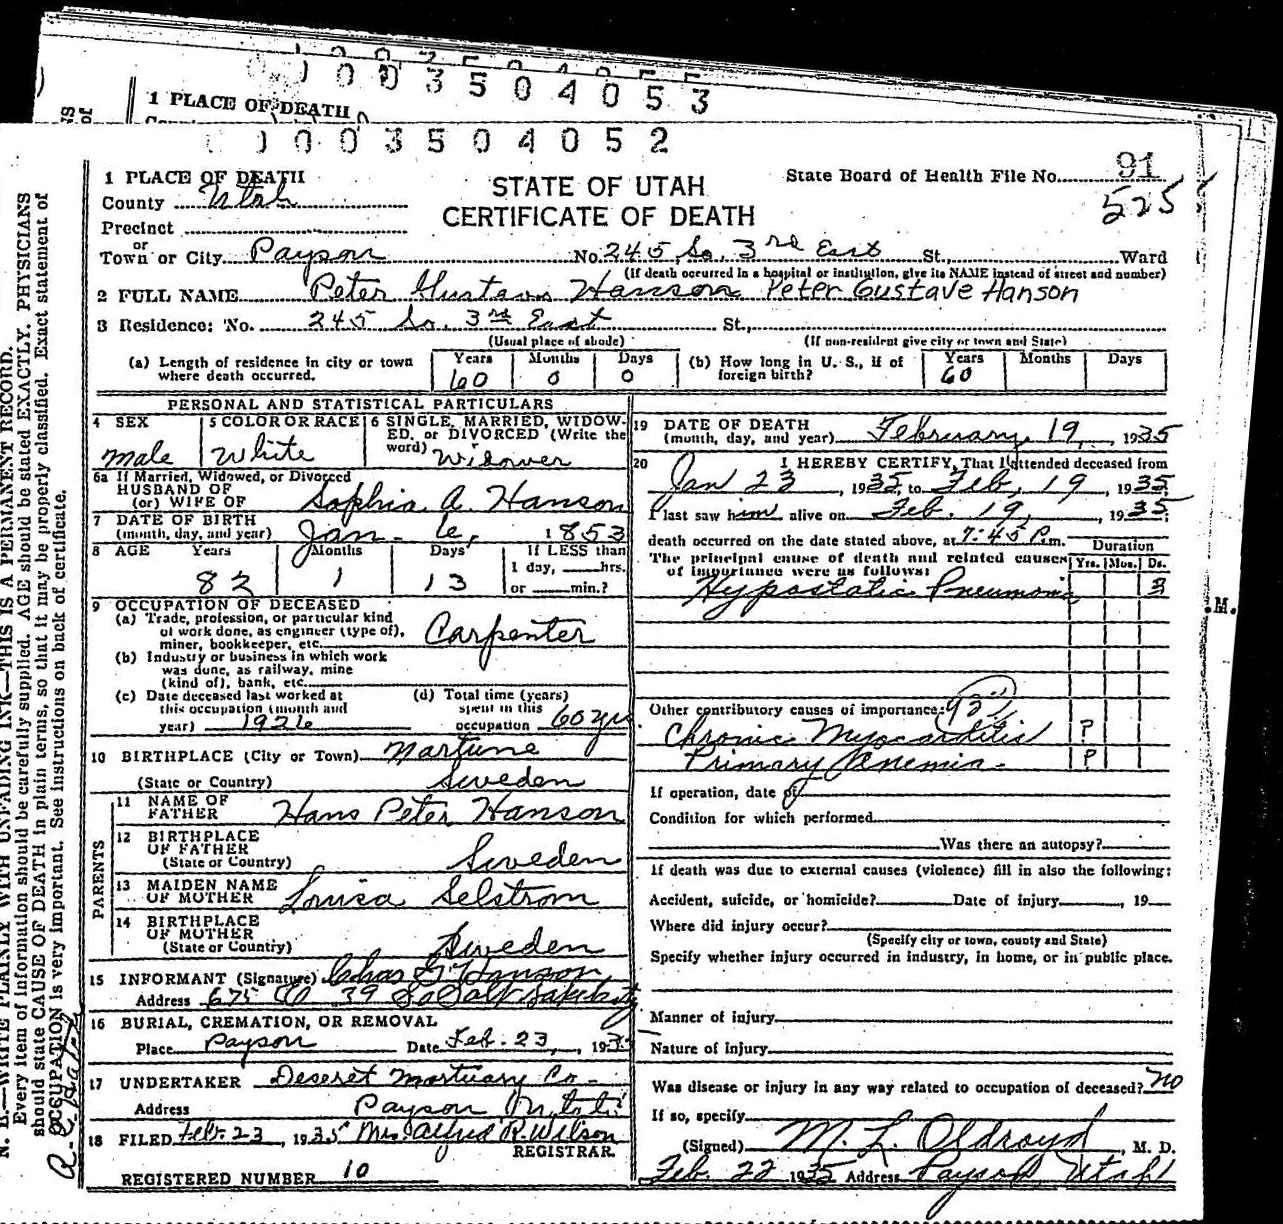 0003504053
1 PLACE OF DEATH
0003504052
1 PLACE OF DEATH
County Utah
Precinct
or
Town or City Payson No. 245 So. 3rd East St., Ward
(If death occurred in a hospital or institution, give its NAME instead of street and number)
STATE OF UTAH
CERTIFICATE OF DEATH
State Board of Health File No. 91
525
2 FULL NAME Peter Gustave Hanson Peter Gustave Hanson
3 Residence: No. 245 So. 3rd East St.,
(Usual place of abode) (If non-resident give city or town and State)
(a) Length of residence in city or town where death occurred. Years 60 Months 0 Days 0
(b) How long in U. S., if of foreign birth? Years 60 Months Days
PERSONAL AND STATISTICAL PARTICULARS
4 SEX male
5 COLOR OR RACE White
6 SINGLE, MARRIED, WIDOWED, or DIVORCED (Write the word) Widower
6a If Married, Widowed, or Divorced
HUSBAND OF
(or) WIFE OF Sophia A. Hanson
7 DATE OF BIRTH
(month, day, and year) Jan. 6, 1853
8 AGE Years 82 Months 1 Days 13 If LESS than 1 day, hrs. or min.?
9 OCCUPATION OF DECEASED
(a) Trade, profession, or particular kind
of work done, as engineer (type of),
miner, bookkeeper, etc. Carpenter
(b) Industry or business in which work
was done, as railway, mine
(kind of), bank, etc.
(c) Date deceased last worked at
this occupation (month and
year) 1926
(d) Total time (years)
spent in this
occupation 60 yrs.
10 BIRTHPLACE (City or Town)
(State or Country) Sweden
PARENTS
11 NAME OF
FATHER Hans Peter Hanson
12 BIRTHPLACE
OF FATHER
(State or Country) Sweden
13 MAIDEN NAME
OF MOTHER Louisa Selstrom
14 BIRTHPLACE
OF MOTHER
(State or Country) Sweden
15 INFORMANT (Signature) Chas G. Hanson
Address 675 39 So Salt Lake City
16 BURIAL, CREMATION, OR REMOVAL
Place Payson Date Feb. 23, 193
17 UNDERTAKER Deseret Mortuary Co.
Address Payson Utah
18 FILED Feb. 23, 1935 Mrs. Alfred R. Wilson
REGISTRAR.
REGISTERED NUMBER 10
19 DATE OF DEATH
(month, day, and year) February 19, 1935
20 I HEREBY CERTIFY, That I attended deceased from
Jan 23, 1935, to Feb. 19, 1935
I last saw him alive on Feb. 19, 1935;
death occurred on the date stated above, at 7:45 P.m.
The principal cause of death and related causes
of importance were as follows:
Duration
Yrs. Mos. Ds.
Hypostatic Pneumonia 3
Other contributory causes of importance:
Chronic Myocarditis ?
Primary Anemia ?
If operation, date of
Condition for which performed
Was there an autopsy?
If death was due to external causes (violence) fill in also the following:
Accident, suicide, or homicide? Date of injury , 19
Where did injury occur?
(Specify city or town, county and State)
Specify whether injury occurred in industry, in home, or in public place.
Manner of injury
Nature of injury
Was disease or injury in any way related to occupation of deceased? no
If so, specify
(Signed) M. L. Oldroyd, M. D.
Feb. 22 1935 Address Payson, Utah
N. B.—WRITE PLAINLY WITH UNFADING INK—THIS IS A PERMANENT RECORD.
Every item of information should be carefully supplied. AGE should be stated EXACTLY. PHYSICIANS
should state CAUSE OF DEATH in plain terms, so that it may be properly classified. Exact statement of
OCCUPATION is very important. See instructions on back of certificate.